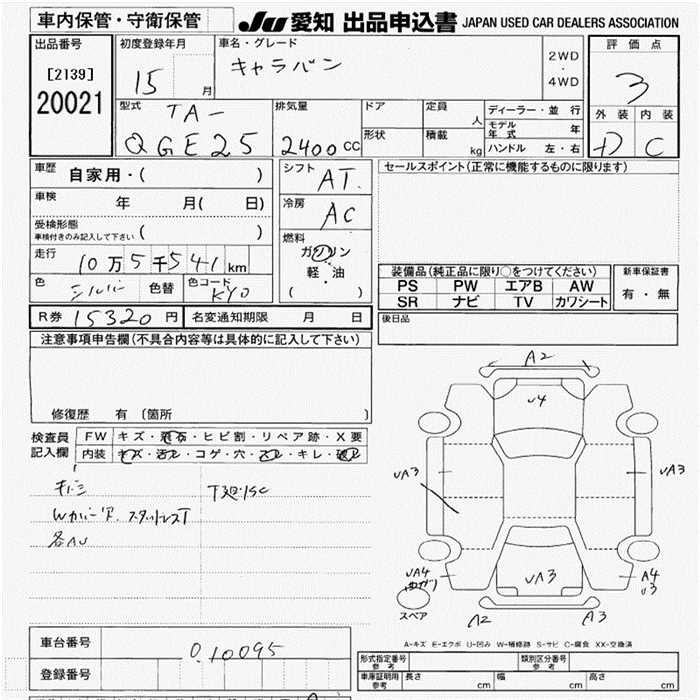 車内保管・守衛保管
JU 愛知 出品申込書 JAPAN USED CAR DEALERS ASSOCIATION
出品番号
[2139]
20021
初度登録年月
15 月
車名・グレード
キャラバン
2WD
・
4WD
評価点
3
外装 内装
D C
型式
TA-
QGE25
排気量
2400 CC
ドア
形状
定員
人
積載
kg
ディーラー・並 行
モデル
年 式
年
ハンドル 左・右
車歴
自家用・( )
車検
年 月( 日)
受検形態
車検付きのみ記入して下さい ( )
走行
10万5千541 km
色
シルバー
色替
色コード
KY0
シフト
AT.
冷房
AC
燃料
ガソリン
軽・油
( )
セールスポイント(正常に機能するものに限ります)
装備品(純正品に限り○をつけてください)
PS PW エアB AW
SR ナビ TV カワシート
新車保証書
有・無
R券 15320 円
名変通知期限 月 日
後日品
注意事項申告欄(不具合内容等は具体的に記入して下さい)
修復歴 有 〔箇所 〕
検査員
記入欄
FW キズ・飛石・ヒビ割・リペア跡・X要
内装 キズ・汚ル・コゲ・穴・スレ・キレ・破レ
キバミ
下廻りSC
Wカバー
各AU
A2
U4
UA3
UA3
UA3
UA4
曲ガリ
スペア
A2
A3
A4
U3
A-キズ E-エクボ U-凹み W-補修跡 S-サビ C-腐食 XX-交換済
車台番号
0,10095
登録番号
形式指定番号
参考
類別区分番号
参考
車庫証明用
参考
長さ cm
幅 cm
高さ cm